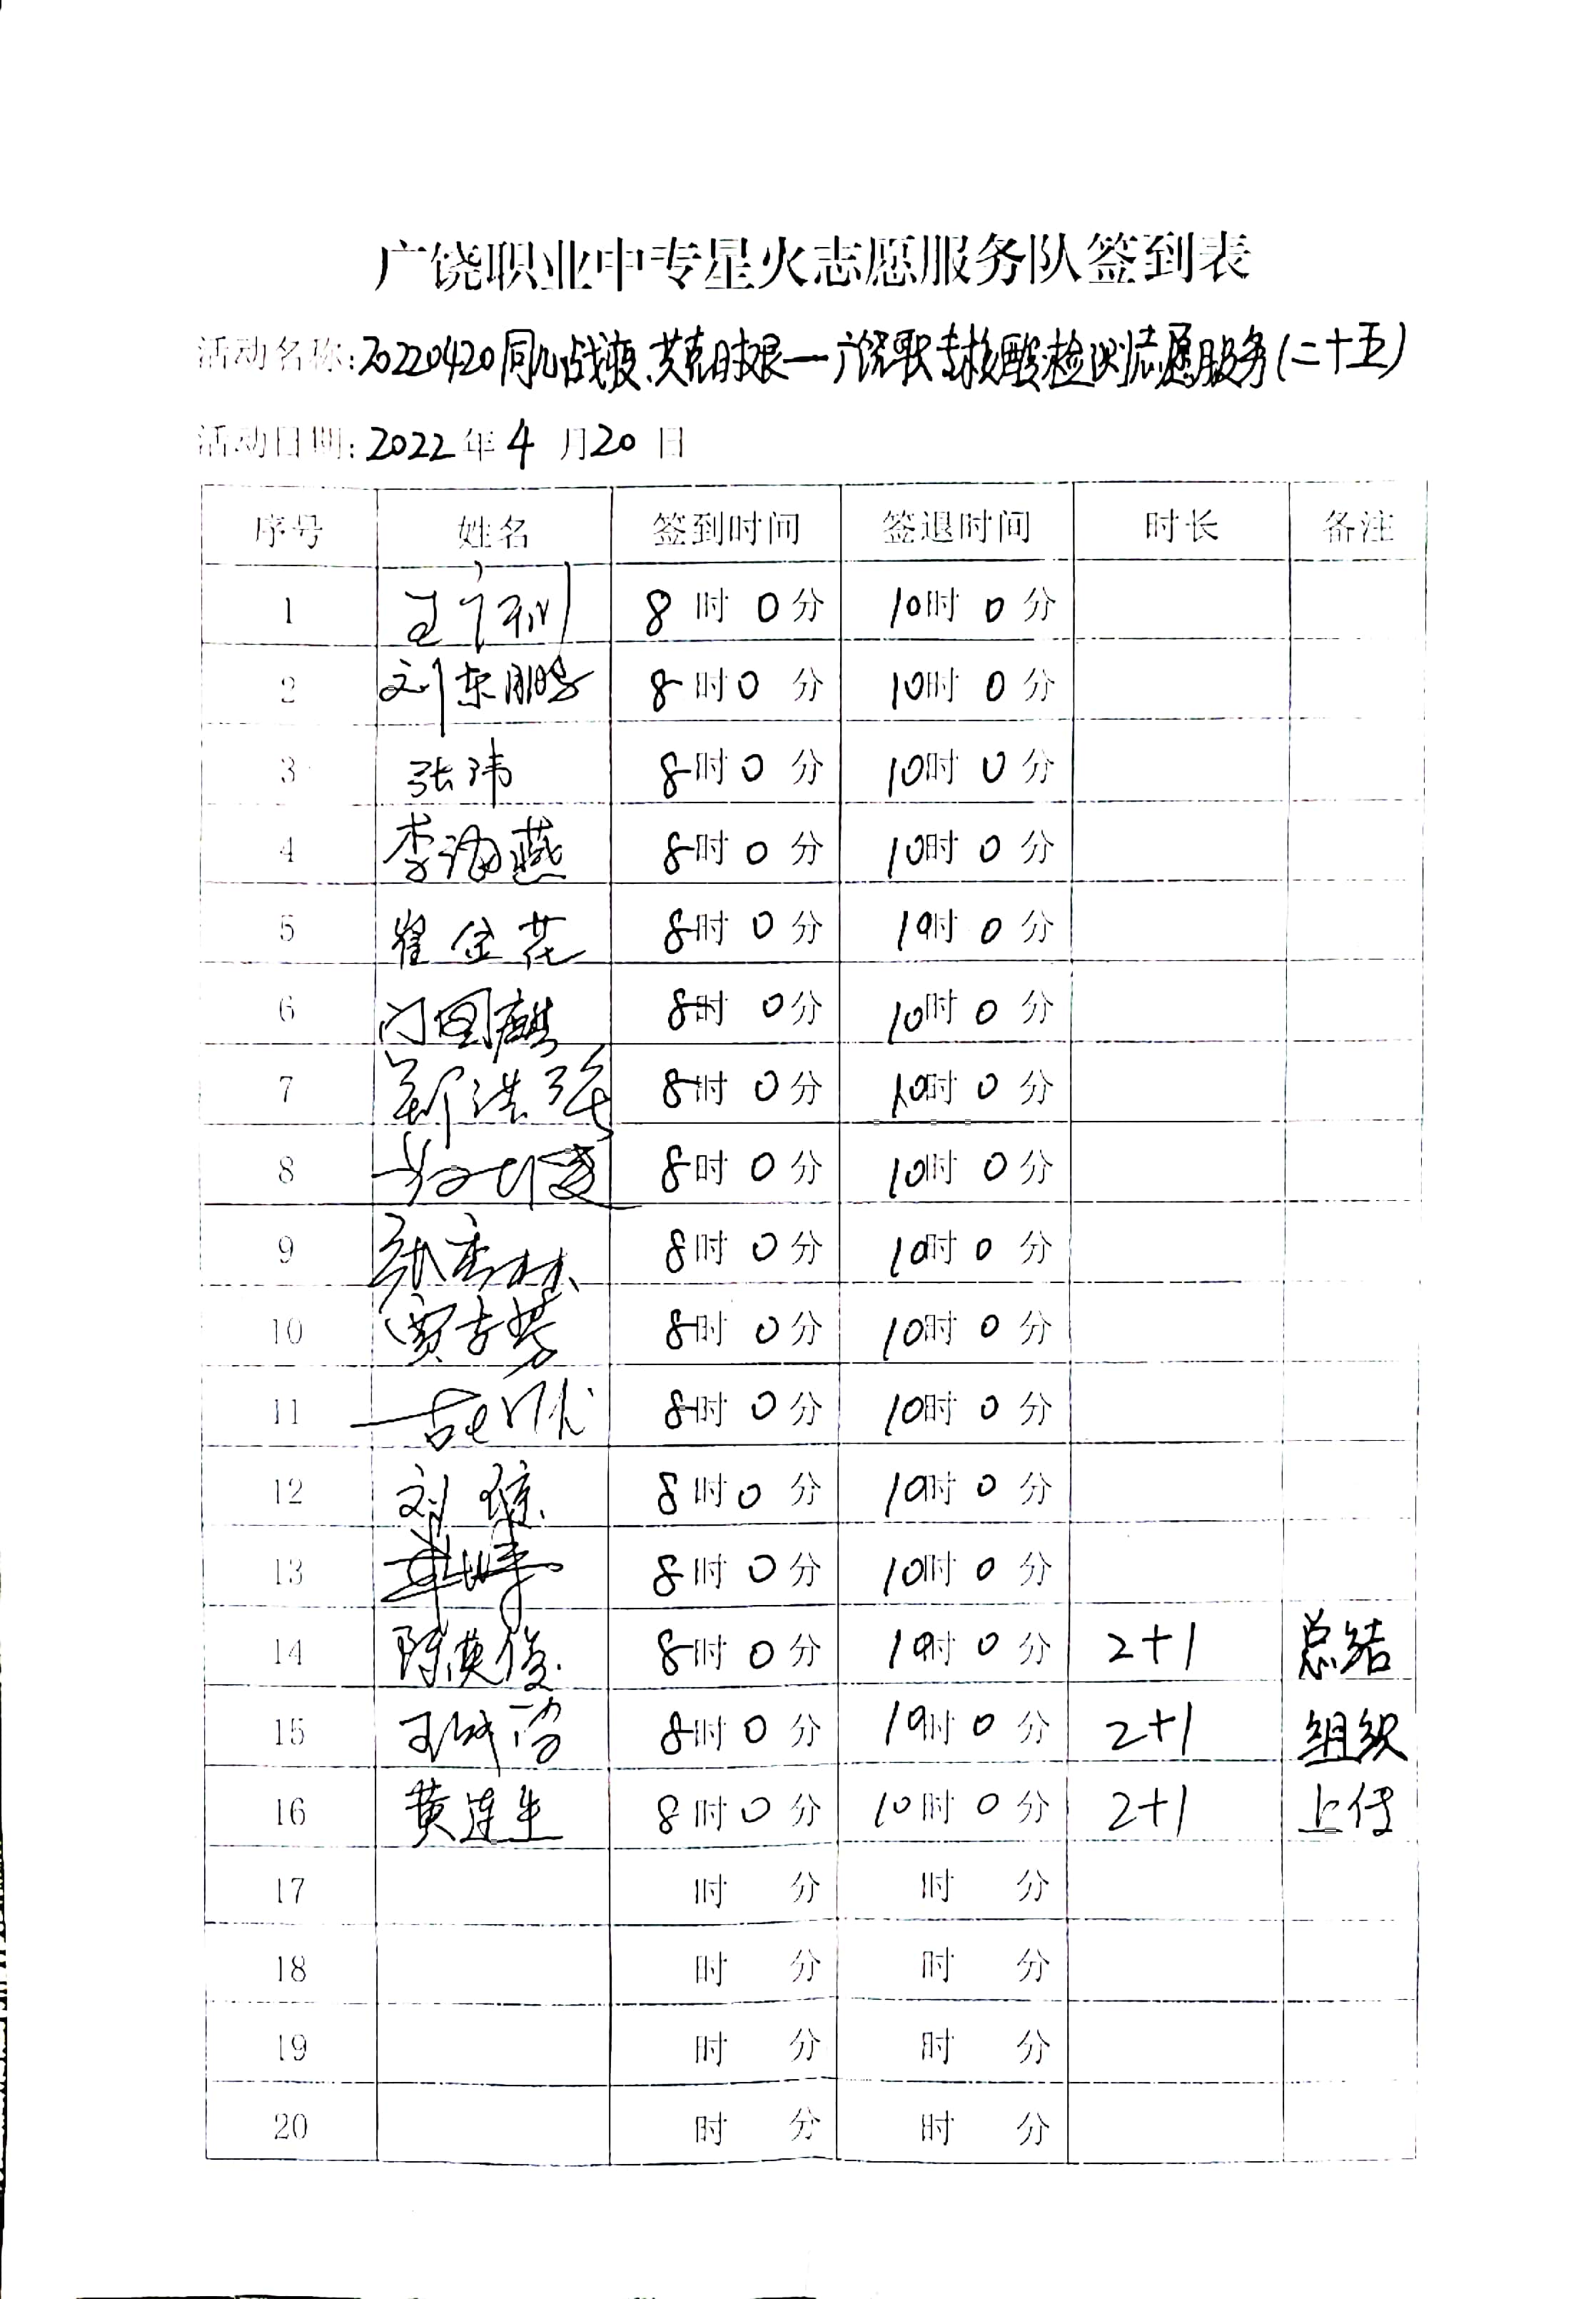 广饶职业中专星火志愿服务队签到表
活动名称:20220420同心战疫、共克时艰—广饶职专核酸检测志愿服务(二十五)
活动日期:2022年4月20日
序号 姓名 签到时间 签退时间 时长 备注
1 8时0分 10时0分
2 刘东鹏 8时0分 10时0分
3 张玮 8时0分 10时0分
4 李海燕 8时0分 10时0分
5 翟金花 8时0分 10时0分
6 门国麟 8时0分 10时0分
7 靳浩强 8时0分 10时0分
8 8时0分 10时0分
9 8时0分 10时0分
10 贾吉芳 8时0分 10时0分
11 8时0分 10时0分
12 刘琼 8时0分 10时0分
13 8时0分 10时0分
14 陈英俊 8时0分 10时0分 2+1 总结
15 8时0分 10时0分 2+1 组织
16 黄连生 8时0分 10时0分 2+1 上传
17 时 分 时 分
18 时 分 时 分
19 时 分 时 分
20 时 分 时 分